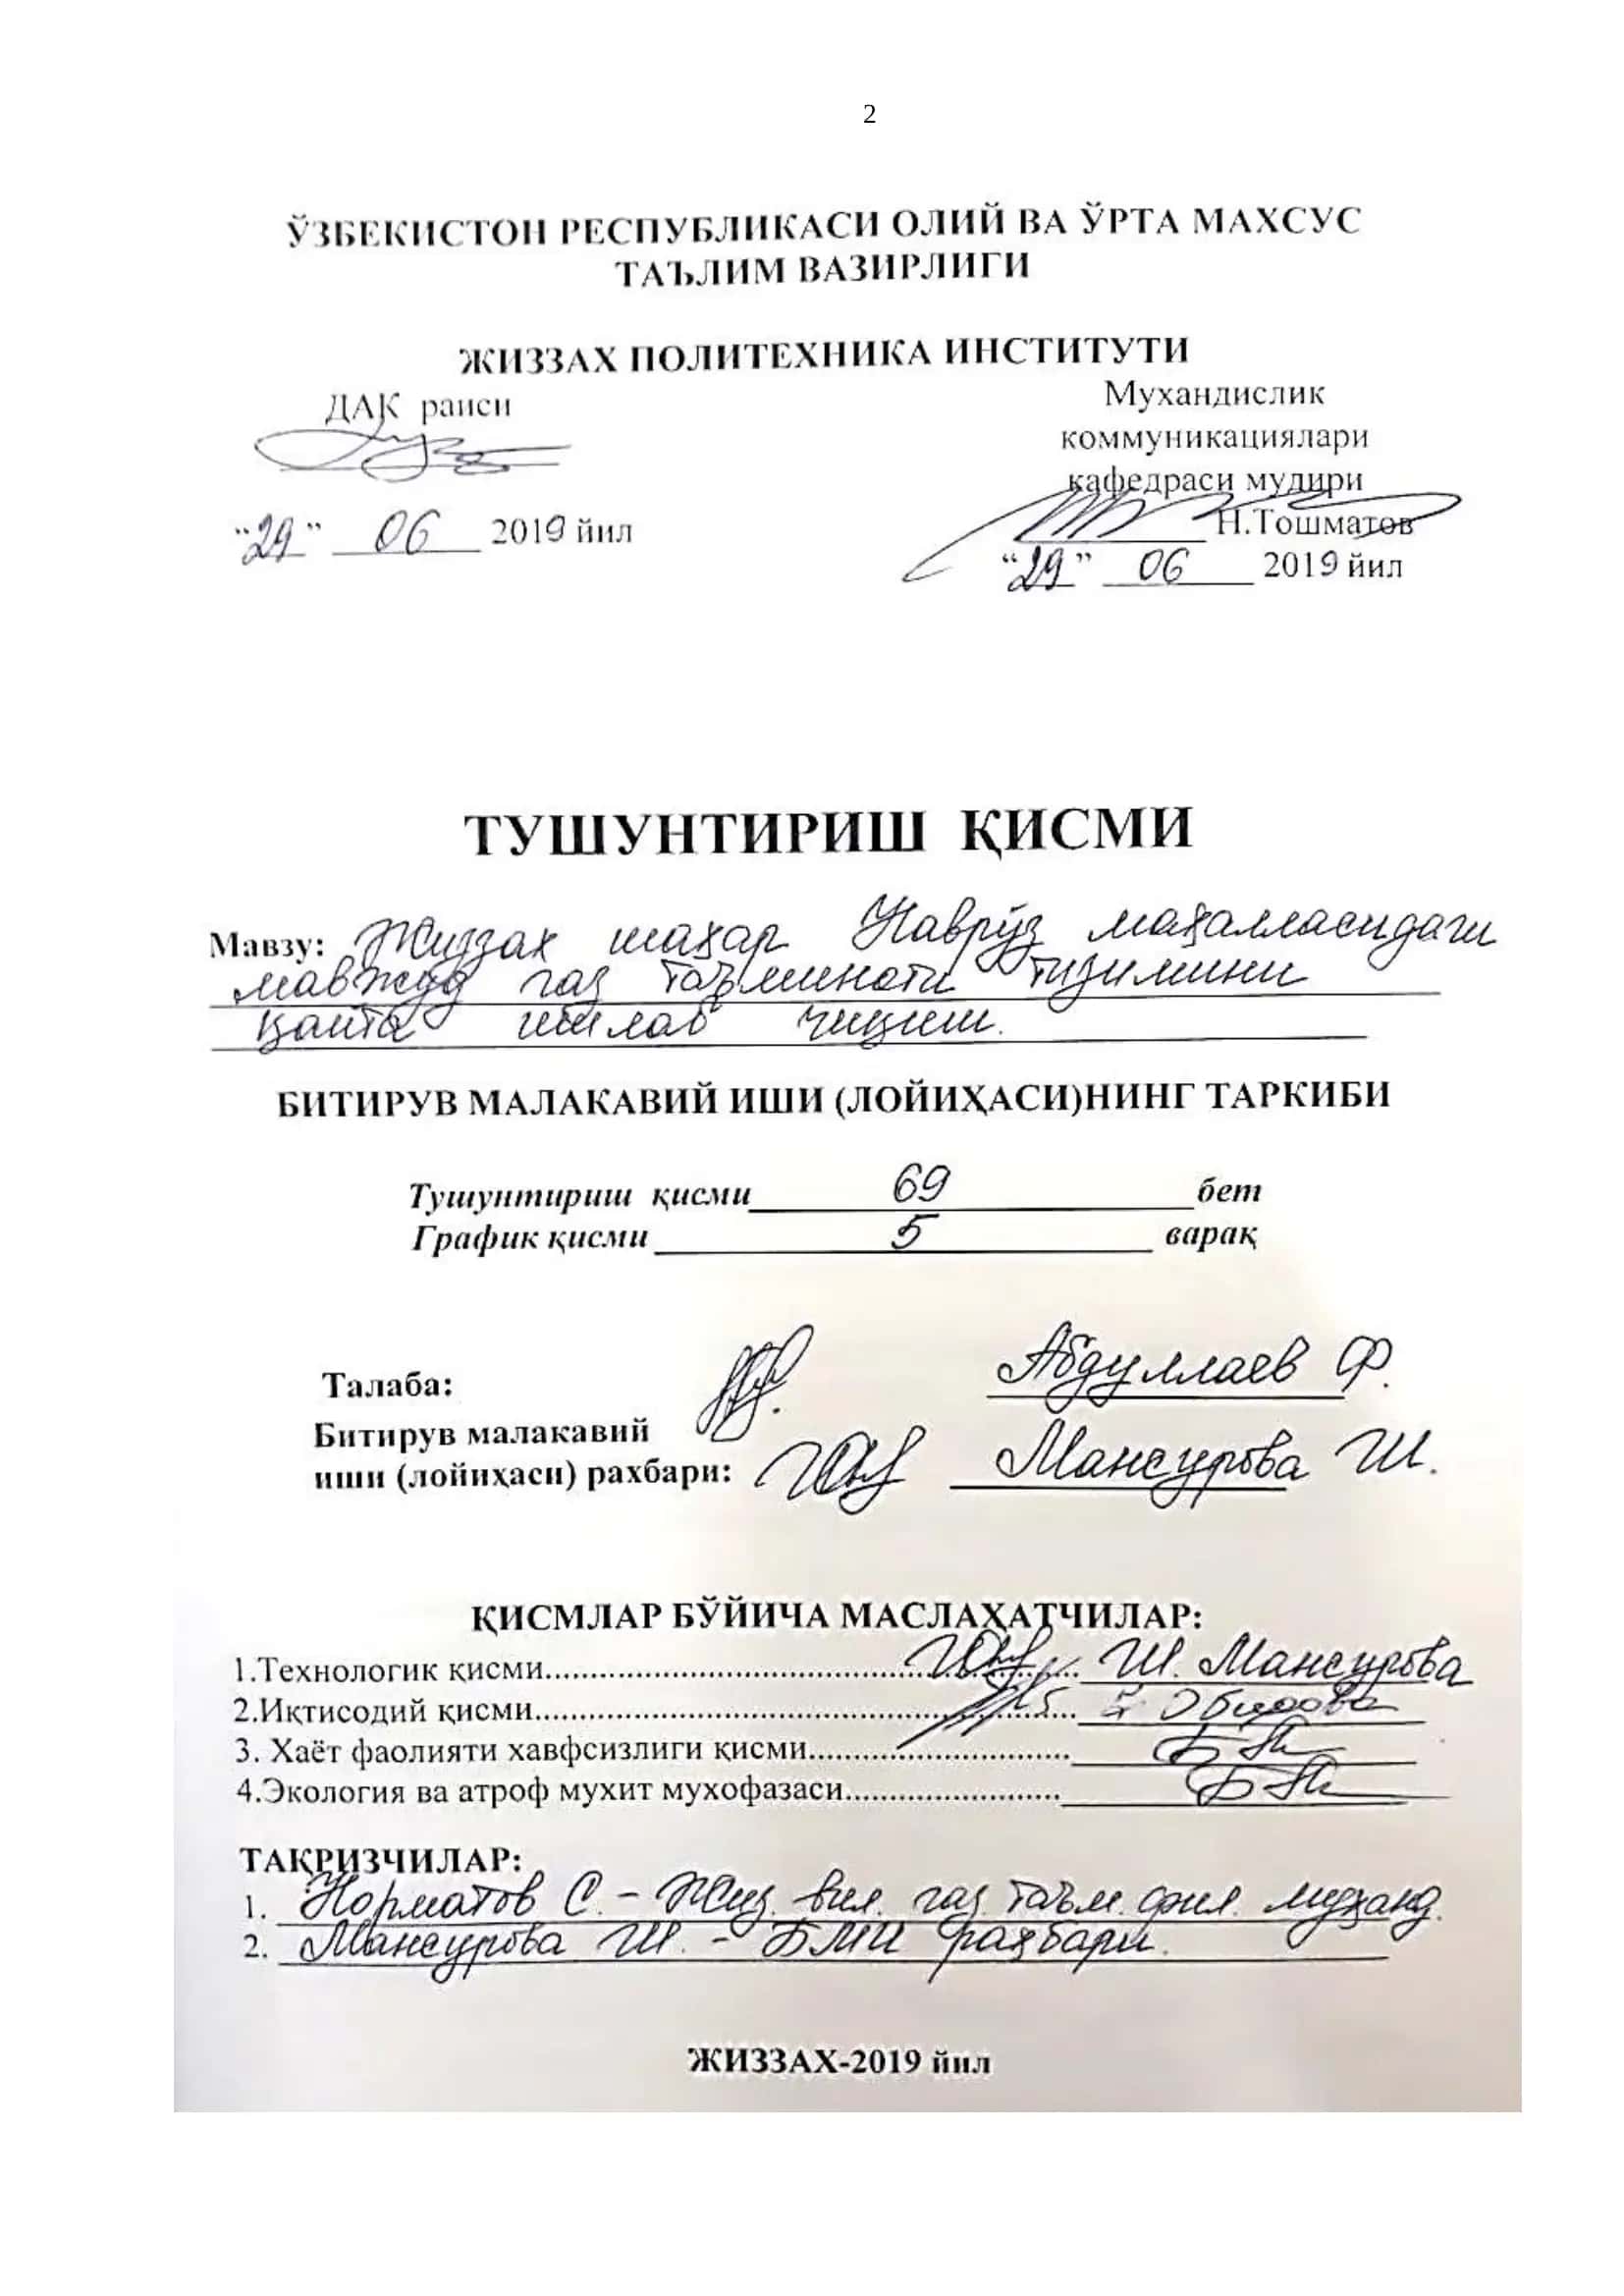 2
ЎЗБЕКИСТОН РЕСПУБЛИКАСИ ОЛИЙ ВА ЎРТА МАХСУС
ТАЪЛИМ ВАЗИРЛИГИ
ЖИЗЗАХ ПОЛИТЕХНИКА ИНСТИТУТИ
ДАК раиси
“29” 06 2019 йил
Мухандислик
коммуникациялари
кафедраси мудири
Н.Тошматов
“29” 06 2019 йил
ТУШУНТИРИШ ҚИСМИ
Мавзу: Жиззах шаҳар Наврўз маҳалласидаги
мавжуд газ таъминоти тизимини
қайта ишлаб чиқиш.
БИТИРУВ МАЛАКАВИЙ ИШИ (ЛОЙИҲАСИ)НИНГ ТАРКИБИ
Тушунтириш қисми 69 бет
График қисми 5 варақ
Талаба: Абдуллаев Ф.
Битирув малакавий
иши (лойиҳаси) рахбари: Мансурова Ш.
ҚИСМЛАР БЎЙИЧА МАСЛАҲАТЧИЛАР:
1.Технологик қисми.......... Ш. Мансурова
2.Иқтисодий қисми.......... Обидова
3. Хаёт фаолияти хавфсизлиги қисми..........
4.Экология ва атроф мухит мухофазаси..........
ТАҚРИЗЧИЛАР:
1. Норматов С. - Жиз. вил. газ таъм. фил. муҳанд.
2. Мансурова Ш. - БМИ раҳбари.
ЖИЗЗАХ-2019 йил